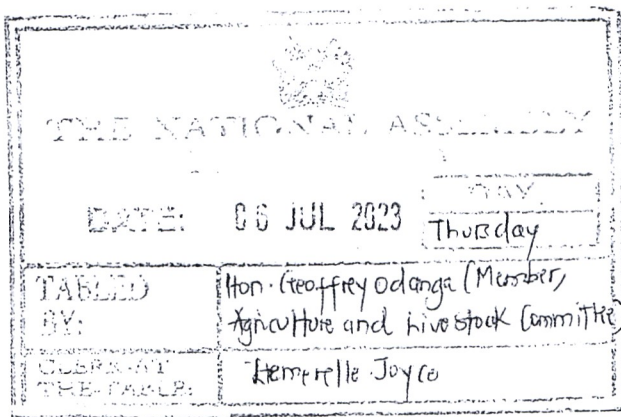 THE NATIONAL ASSEMBLY
DATE: 06 JUL 2023
DAY
Thursday
TABLED BY:
Hon. Geoffrey Odanga (Member, Agriculture and Livestock Committee)
CLERK-AT THE-TABLE:
Joyce